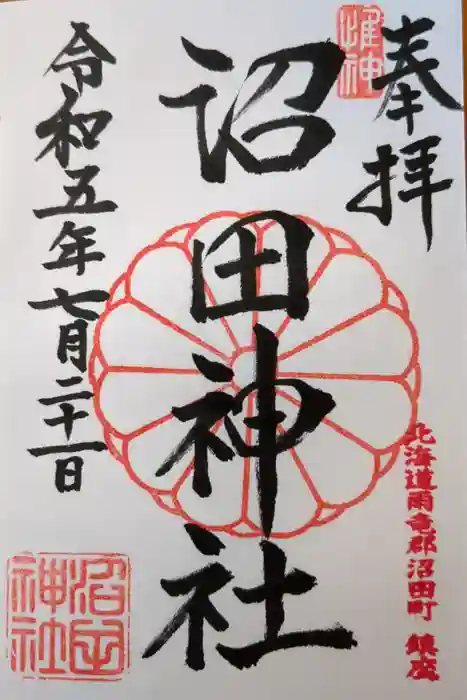 奉拝
惟神
北海道雨竜郡沼田町 鎮座
沼田神社
令和五年七月二十一日
沼田
神社